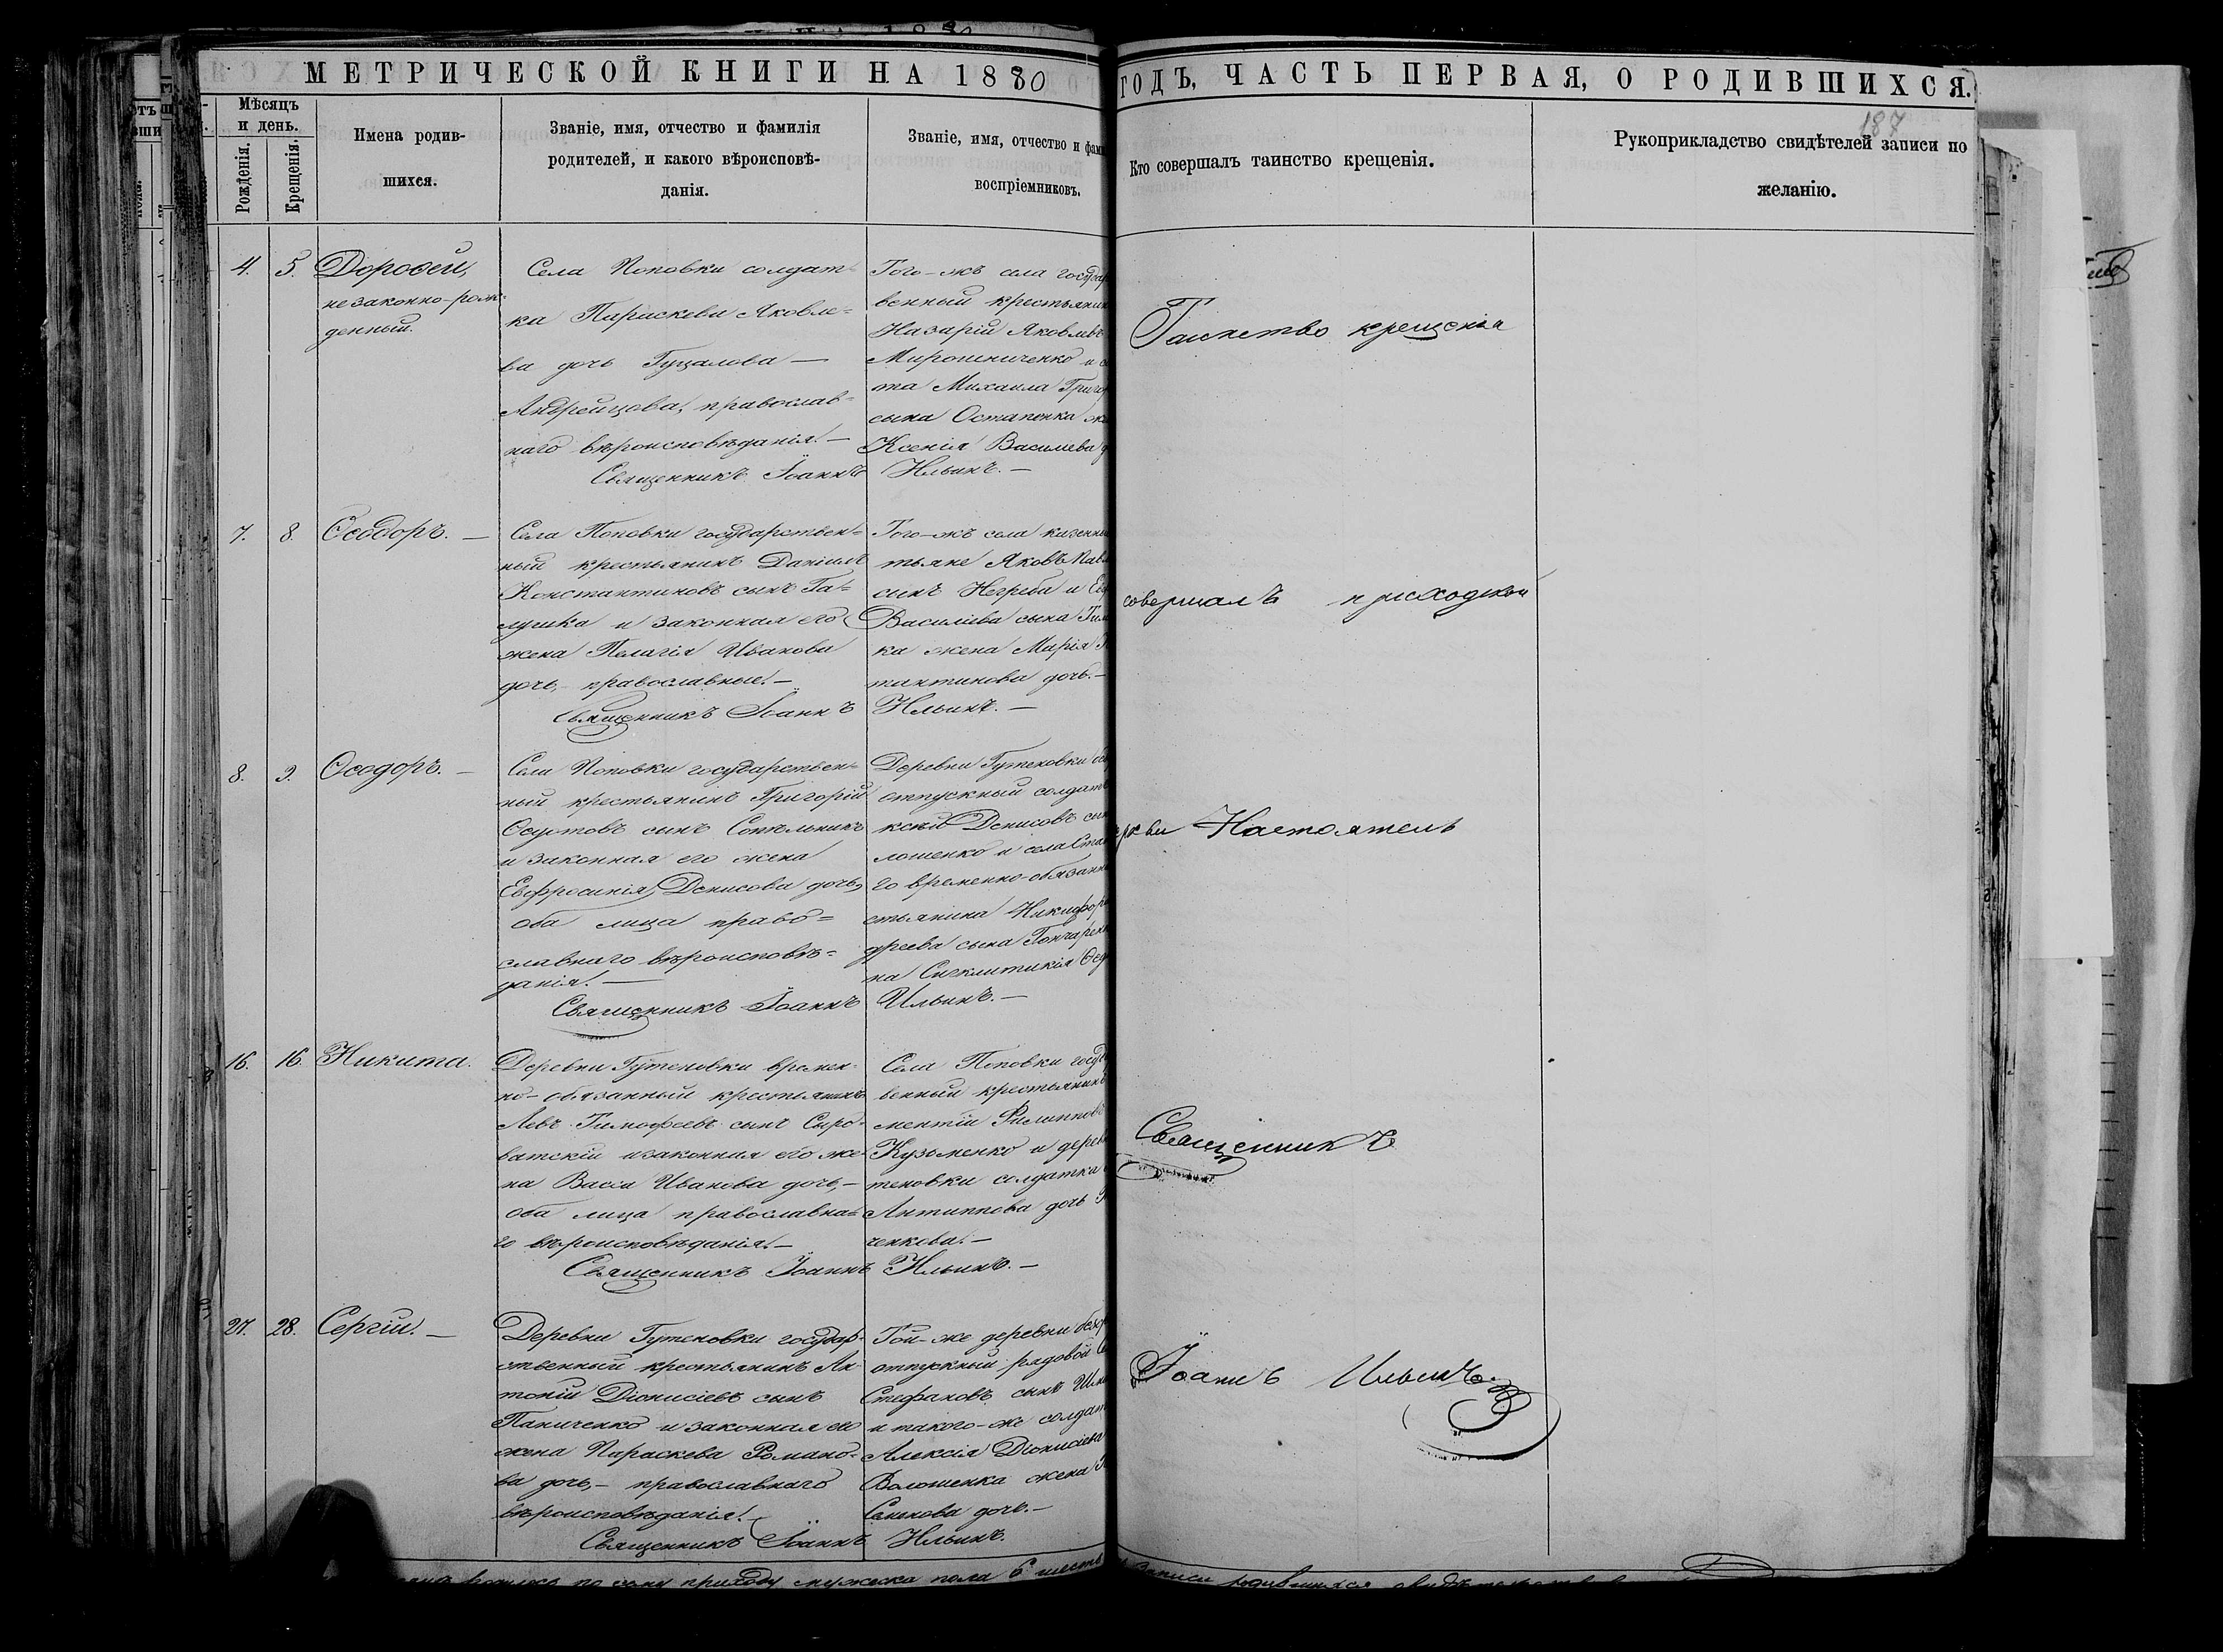 МЕТРИЧЕСКОЙ КНИГИ НА 1880
ГОДЪ, ЧАСТЬ ПЕРВАЯ, О РОДИВШИХСЯ.
187
Мѣсяцъ
и день.
Рожденія.
Крещенія.
Имена родив-
шихся.
Званіе, имя, отчество и фамилія
родителей, и какого вѣроисповѣ-
данія.
Званіе, имя, отчество и фами
воспріемниковъ.
Кто совершалъ таинство крещенія.
Рукоприкладство свидѣтелей записи по
желанію.
4.
5.
Дороѳей,
незаконно-рож-
денный.
Села Поповки солдат-
ка Параскева Яковле=
ва дочь Гуцалова —
Андрейцова, православ=
наго вѣроисповѣданія. —
Священникъ Іоаннъ Ильинъ. —
Того-жъ села государ
венный крестьянин
Назарій Яковлевъ
Мирошниченко и с
та Михаила Григо
сына Остапенка
Ксенія Василіева
7.
8.
Ѳеодоръ. —
Села Поповки государствен=
ный крестьянинъ Даніилъ
Константиновъ сынъ Га=
лушка и законная его
жена Пелагія Иванова
дочь, православные. —
Священникъ Іоаннъ Ильинъ. —
Того-жъ села казенны
тьяне Яковъ Пав
сынъ Негреба и
Василіева сына
ка жена Марія
тантинова дочь. —
8.
9.
Ѳеодоръ. —
Села Поповки государствен=
ный крестьянинъ Григорій
сынъ
и законная его жена
Евфросинія Денисова дочь,
оба лица право=
славнаго вѣроисповѣ=
данія. —
Священникъ Іоаннъ Ильинъ. —
Деревни Гутеновки
отпускный солдатъ
ксѣй Денисовъ сын
лошенко и села
го временно-обязанн
стьянина Никифор
дреева сына Гончарен
на Сигклитикія
16.
16.
Никита.
Деревни Гутеновки времен-
но-обязанный крестьянинъ
Левъ Тимофеевъ сынъ Сыро-
ватскій и законная его же-
на Васса Иванова дочь, —
оба лица православна=
го вѣроисповѣданія. —
Священникъ Іоаннъ Ильинъ. —
Села Поповки госуд
венный крестьянинъ
ментій Филипповъ
Кузьменко и дерев
теновки солдатка
Антиппова дочь
ченкова. —
27.
28.
Сергій. —
Деревни Гутеновки государ-
ственный крестьянинъ Ан-
тоній Діонисіевъ сынъ
Паниченко и законная его
жена Параскева Романо-
ва дочь, — православнаго
вѣроисповѣданія. —
Священникъ Іоаннъ Ильинъ.
Той-же деревни безср
отпускный рядовой
Стефановъ сынъ
и такого-же солдат
Алексія Діонисіева
Волошенка жена
Семенова дочь. —
Таинство крещенія
совершалъ приходской
церкви Настоятель
Священникъ
Іоаннъ Ильинъ.
по сему приходу мужеска пола 6 шесть